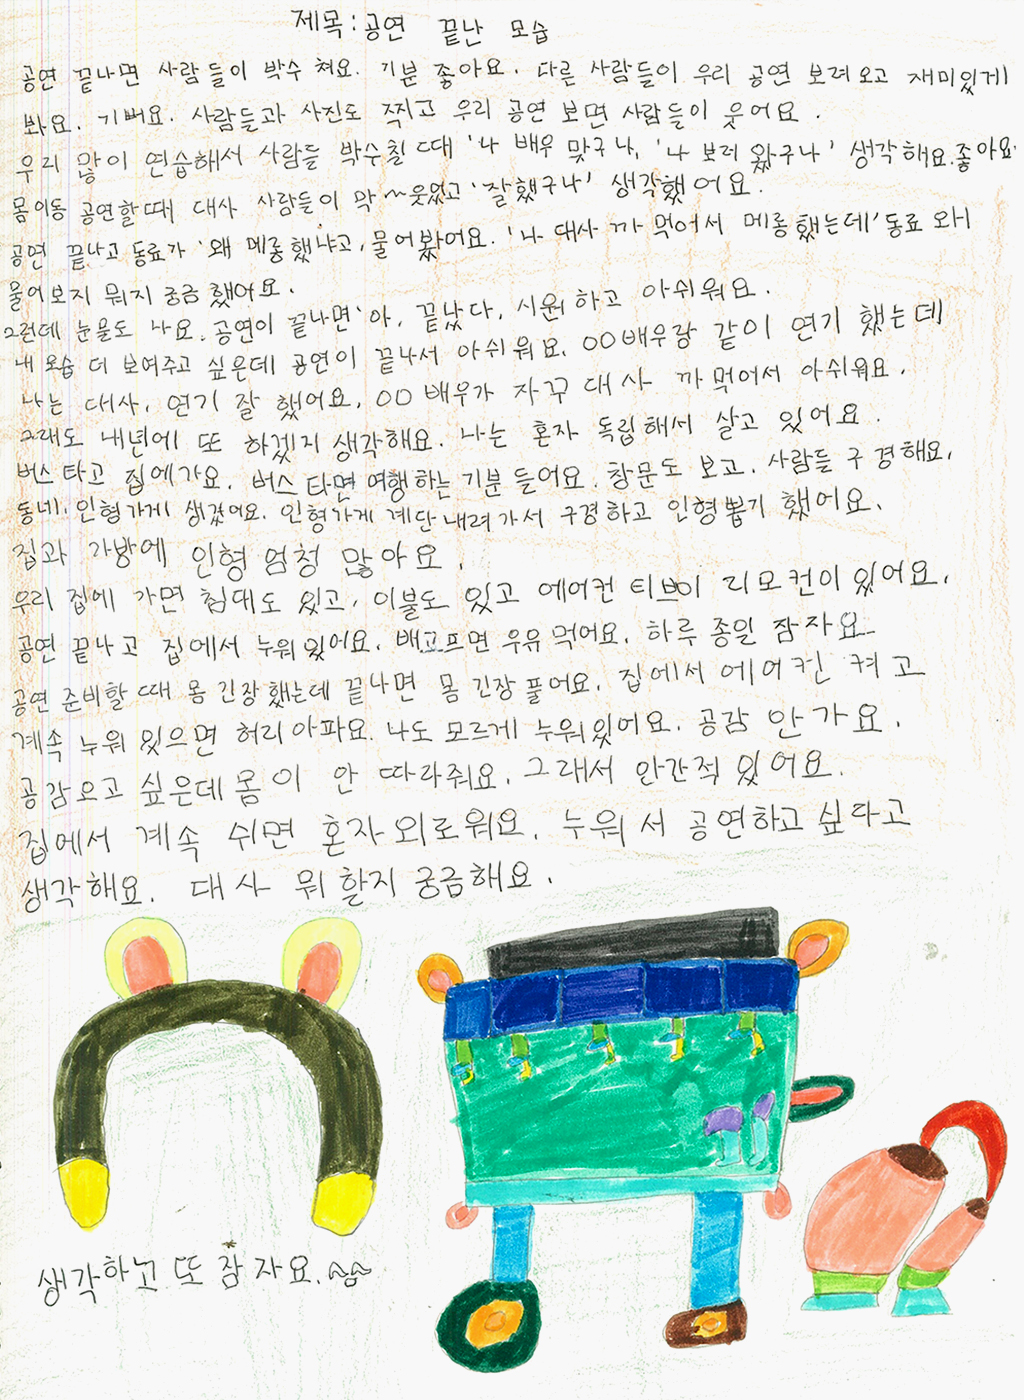 제목: 공연 끝난 모습
공연 끝나면 사람들이 박수 쳐요. 기분 좋아요. 다른 사람들이 우리 공연 보려오고 재미있게
봐요. 기뻐요. 사람들과 사진도 찍고 우리 공연 보면 사람들이 웃어요.
우리 많이 연습해서 사람들 박수칠 때 '나 배우 맞구나, '나 보러 왔구나' 생각해요. 좋아요.
몸이동 공연할때 대사 사람들이 막~웃었고 '잘했구나' 생각했어요.
공연 끝나고 동료가 '왜 메롱했냐고, 물어봤어요. '나 대사 까먹어서 메롱했는데' 동료 와
물어보지 뭐지 궁금했어요.
그런데 눈물도 나요. 공연이 끝나면 '아, 끝났다, 시원하고 아쉬워요.
내 모습 더 보여주고 싶은데 공연이 끝나서 아쉬워요. OO배우랑 같이 연기 했는데
나는 대사, 연기 잘 했어요. OO 배우가 자꾸 대사 까먹어서 아쉬워요.
그래도 내년에 또 하겠지 생각해요. 나는 혼자 독립해서 살고 있어요.
버스타고 집에가요. 버스 타면 여행하는 기분 들어요. 창문도 보고, 사람들 구경해요.
동네, 인형가게 생겼어요. 인형가게 계단 내려가서 구경하고 인형뽑기 했어요.
집과 가방에 인형 엄청 많아요.
우리 집에 가면 침대도 있고, 이불도 있고 에어컨 티브이 리모컨이 있어요.
공연 끝나고 집에서 누워있어요. 배고프면 우유 먹어요. 하루 종일 잠자요
공연 준비할 때 몸 긴장했는데 끝나면 몸 긴장 풀어요. 집에서 에어컨 켜고
계속 누워 있으면 허리아파요. 나도 모르게 누워있어요. 공감 안가요.
공감오고 싶은데 몸이 안 따라줘요. 그래서 안간적 있어요.
집에서 계속 쉬면 혼자 외로워요. 누워서 공연하고 싶다고
생각해요. 대사 뭐 할지 궁금해요.
생각하고 또 잠자요.~~